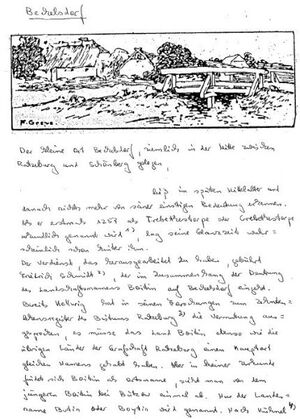 Bechelsdorf
F. Greve.
Der kleine Ort Bechelsdorf, ziemlich in der Mitte zwischen
Ratzeburg und Schönberg gelegen,
ließ im späten Mittelalter und
danach nichts mehr von seiner einstigen Bedeutung erkennen.
Als er erstmals 1253 als
urkundlich genannt wird 1), lag seine Glanzzeit wahr=
scheinlich schon hinter ihm.
Das Verdienst, das herausgearbeitet zu haben, gebührt
Schmidt 2), der im Zusammenhang der Deutung
des Landschaftsnamens Boitin auf Bechelsdorf eingeht.
Bereits Hellwig hat in seinen Forschungen zum Zehnten=
register des Bistums Ratzeburg 3) die Vermutung aus=
gesprochen, es müsse das Land Boitin ebenso wie die
übrigen Länder der Grafschaft Ratzeburg einen Hauptort
gleichen Namens gehabt haben. Aber in keiner Urkunde
findet sich Boitin als Ortsname, sieht man von dem
jüngeren Boitin bei Bützow einmal ab. Nur der Landes=
name Butin oder Boytin wird genannt. Nach Kühnel 4)